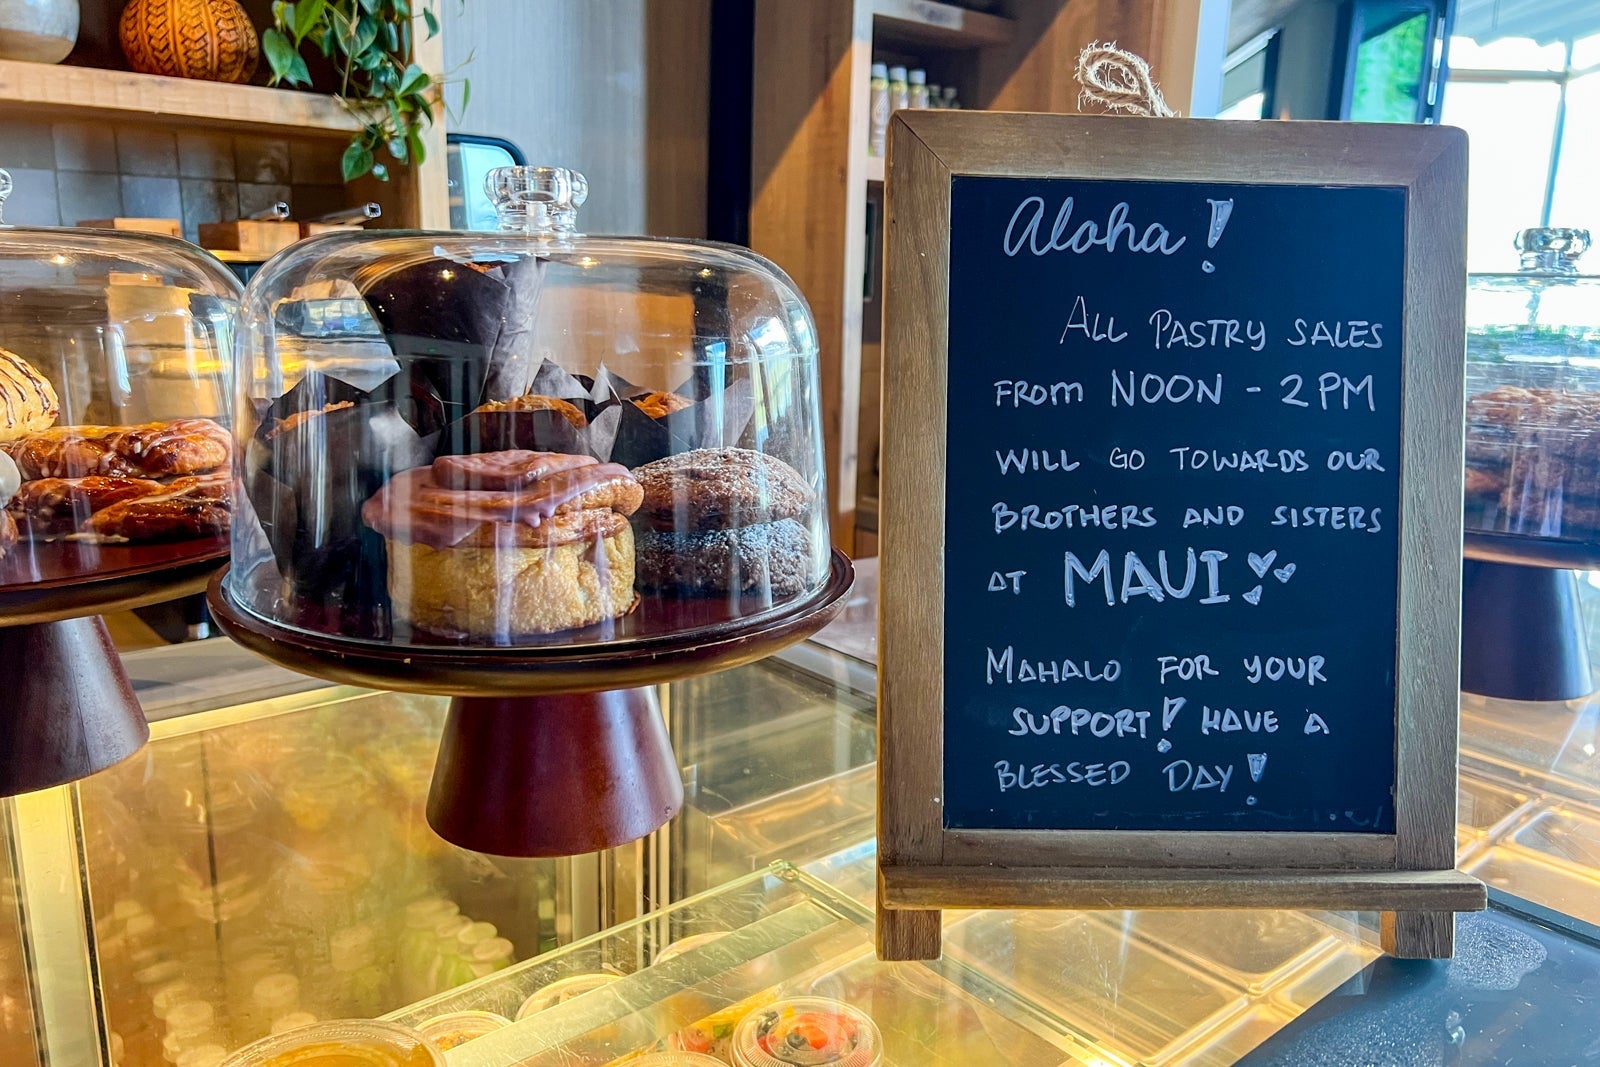 Aloha!
ALL PASTRY SALES
FROM NOON - 2 PM
WILL GO TOWARDS OUR
BROTHERS AND SISTERS
AT MAUI
MAHALO FOR YOUR
SUPPORT! HAVE A
BLESSED DAY!